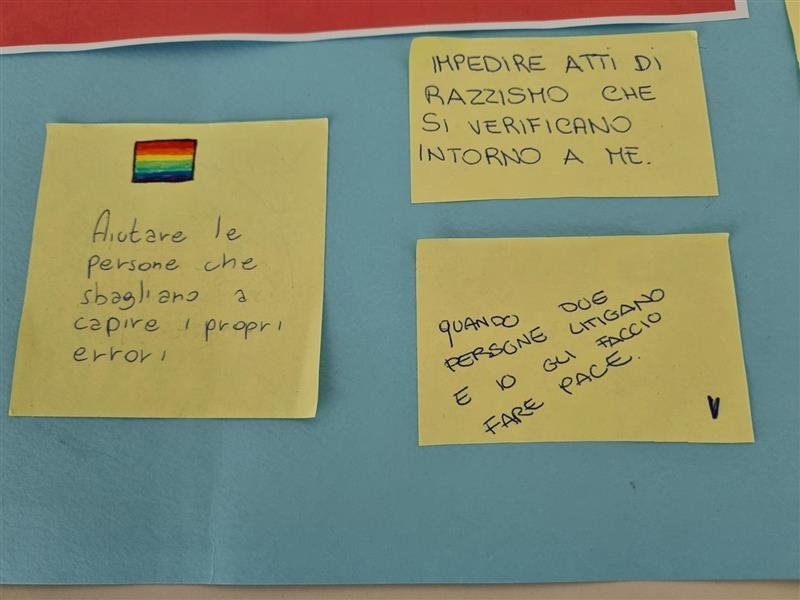 Aiutare le
persone che
sbagliano a
capire i propri
errori
IMPEDIRE ATTI DI
RAZZISMO CHE
SI VERIFICANO
INTORNO A ME.
QUANDO DUE
PERSONE LITIGANO
E IO GLI FACCIO
FARE PACE.
V